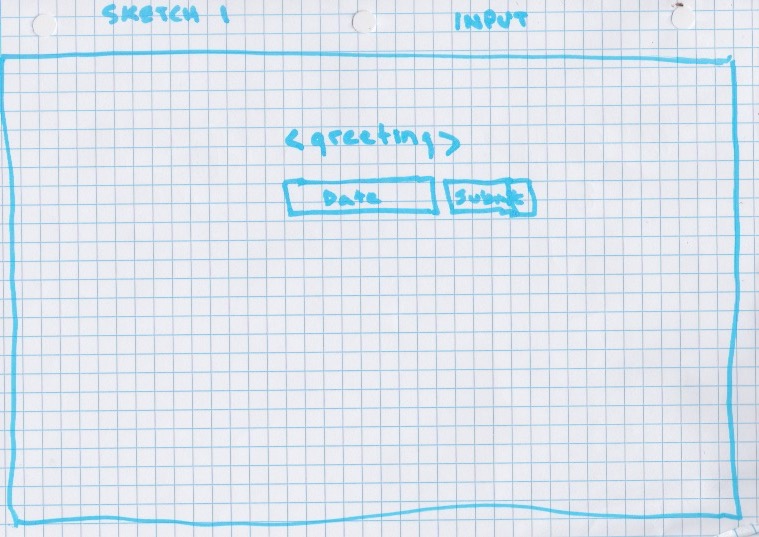 SKETCH 1 INPUT
<greeting>
Date Submit